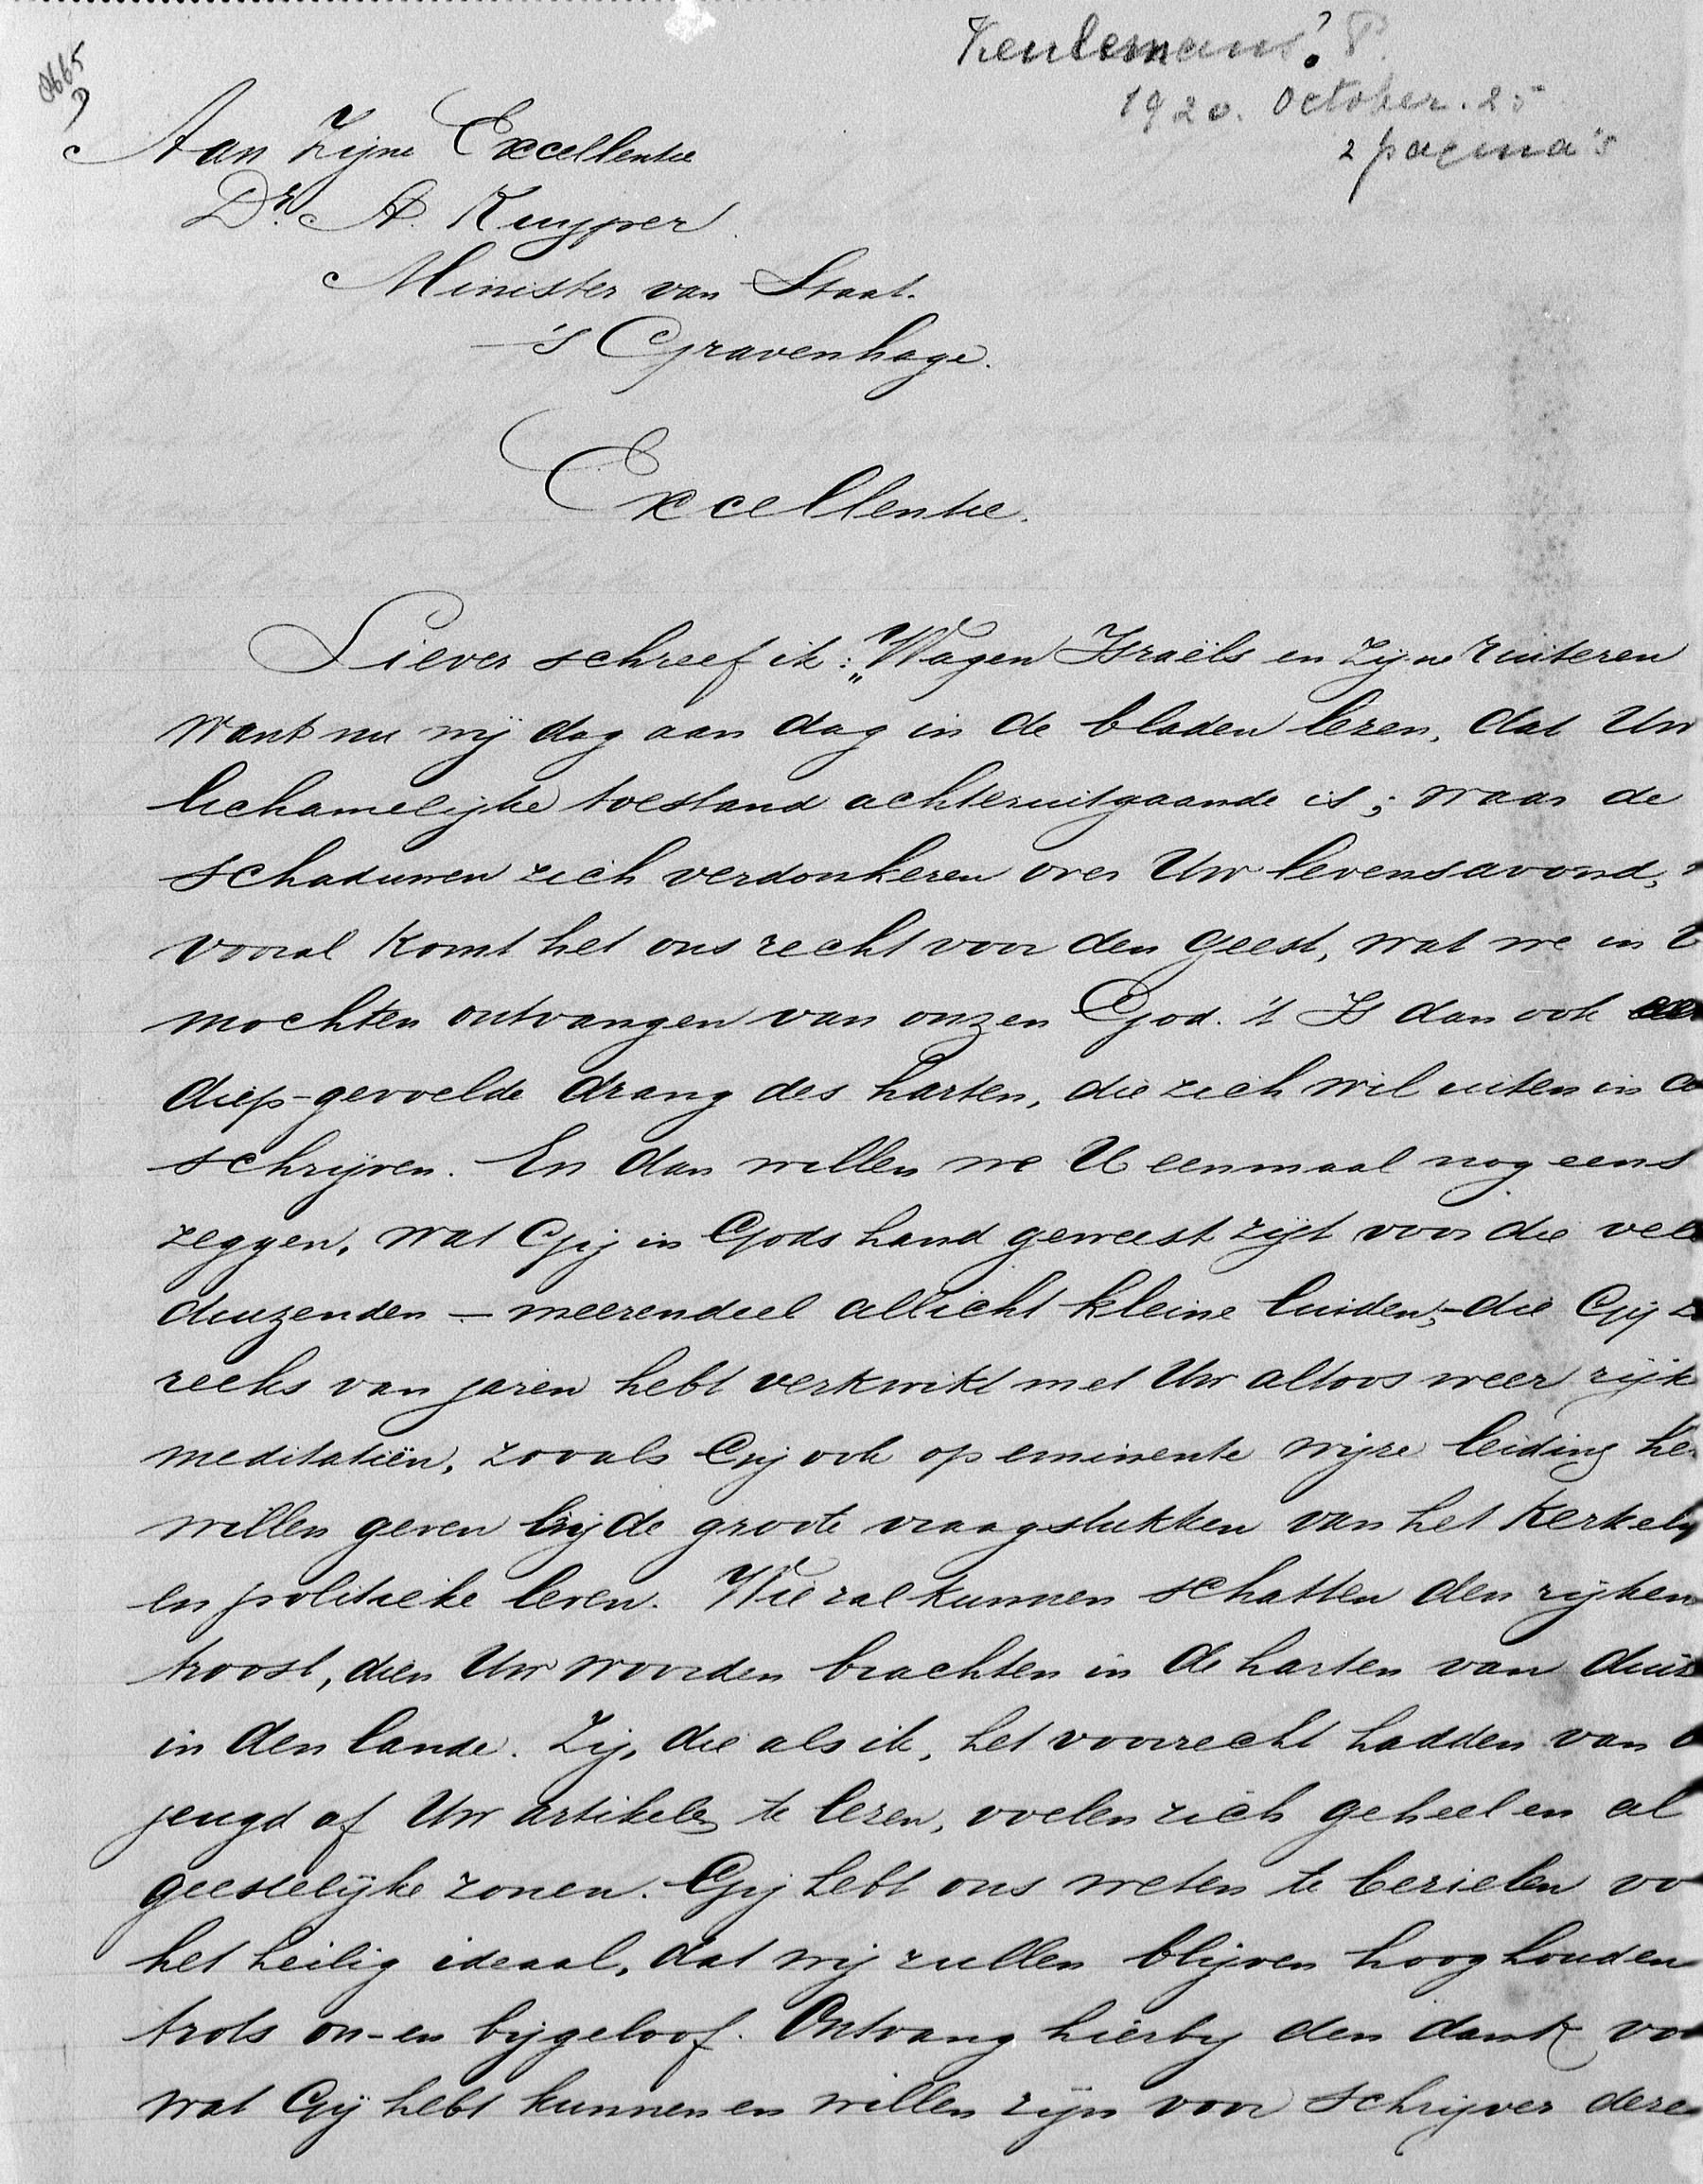 Keulemans? P.
1920. October. 25
2 pagina's
Aan Zijne Excellentie
Dr. A. Kuyper
Minister van Staat.
's Gravenhage.
Excellentie.
Liever schreef ik: „Wagen Israëls en Zijne ruiteren
want nu wij dag aan dag in de bladen lezen, dat Uw
lichamelijke toestand achteruitgaande is; waar de
schaduwen zich verdonkeren over Uw levensavond,
vooral komt het ons recht voor den geest, wat we in
mochten ontvangen van onzen God. 't Is dan ook
diep-gevoelde drang des harten, die zich wil uiten in
schrijven. En dan willen we U eenmaal nog eens
zeggen, wat Gij in Gods hand geweest zijt voor die vele
duizenden - meerendeel allicht kleine luiden,- die Gij
reeks van jaren hebt verkwikt met Uw altoos weer rijk
meditatiën, zooals Gij ook op eminente wijze leiding he
willen geven bij de groote vraagstukken van het Kerkely
en politieke leven. Wie zal kunnen schatten den rijken
troost, dien Uw woorden brachten in de harten van duiz
in den lande. Zij, die als ik, het voorrecht hadden van
jeugd af Uw artikelen te lezen, voelen zich geheel en al
geestelijke zonen. Gij hebt ons weten te bezielen vo
het heilig ideaal, dat wij zullen blijven hooghouden
trots on- en bijgeloof. Ontvang hierby den dank vo
wat Gij hebt kunnen en willen zijn voor schrijver deze